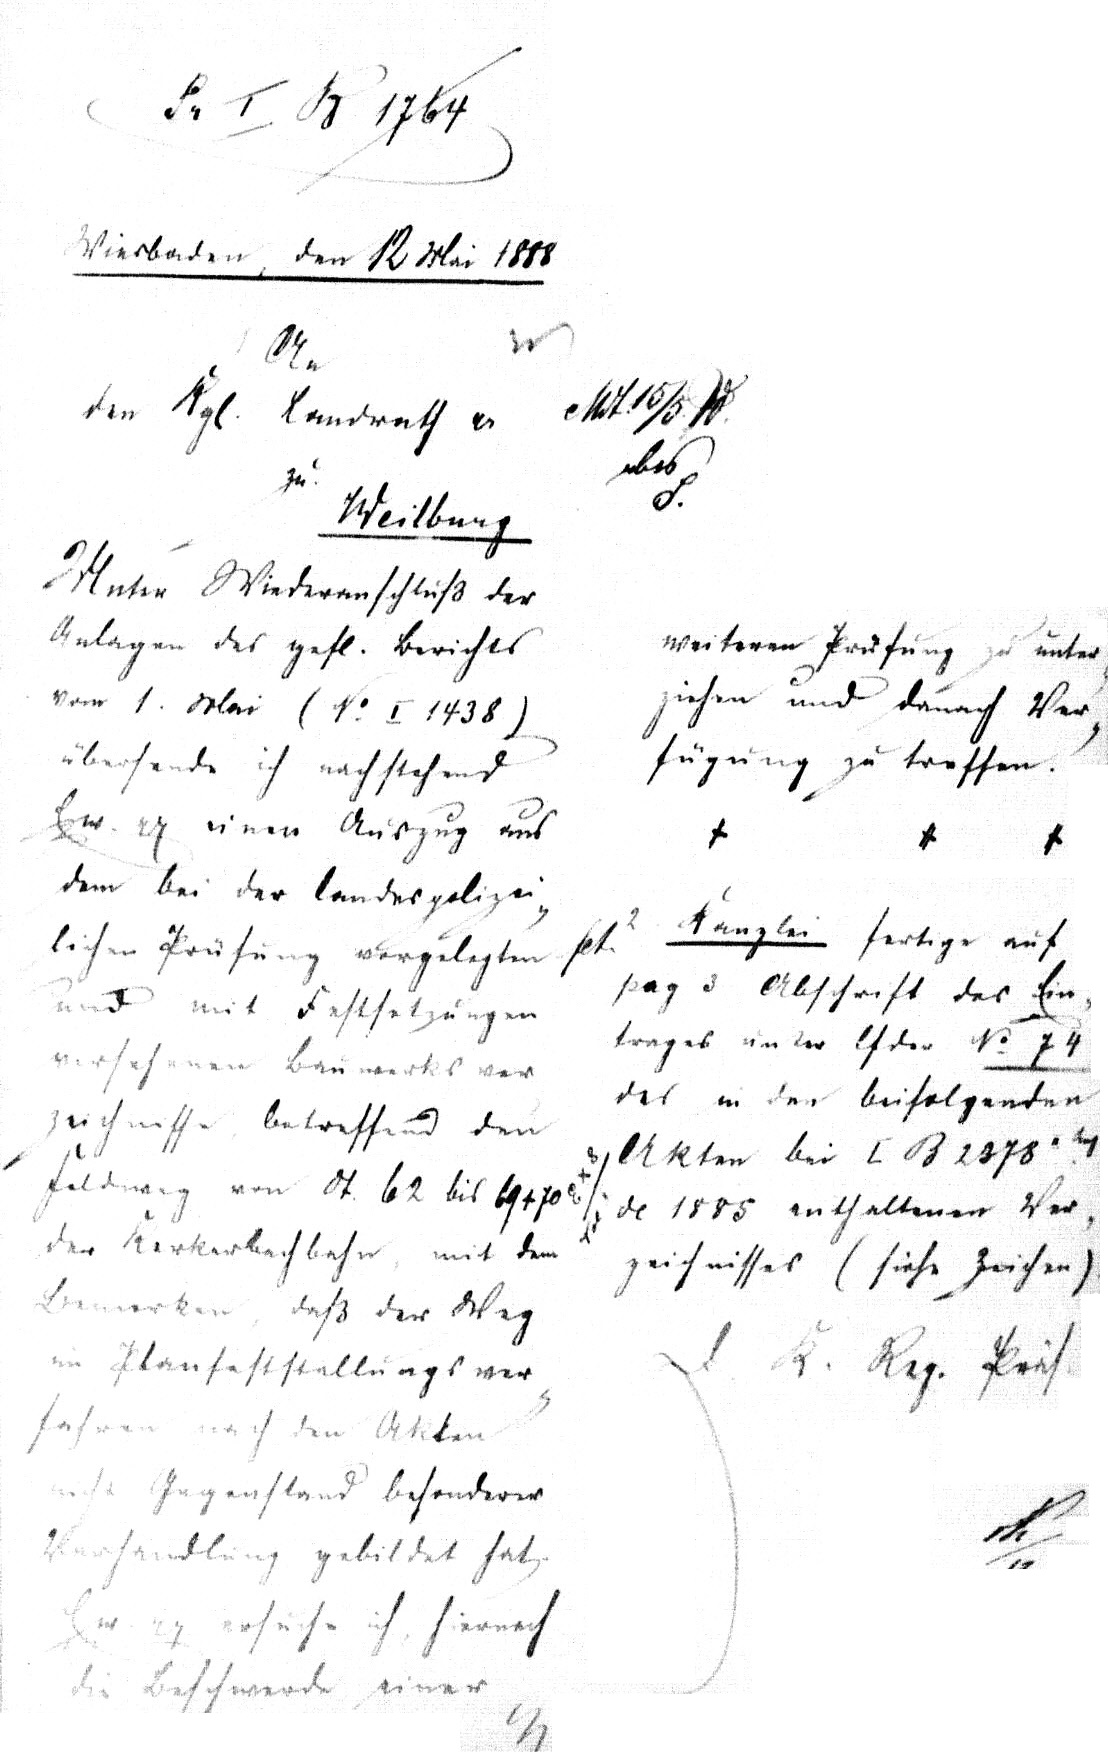 Pr I B 1764
Wiesbaden, den 12 Mai 1888
An
den Kgl. Landrath
zu
Weilburg
Unter Wiederanschluß der
Anlagen des gefl. Berichts
vom 1. Mai (No. I 1438)
übersende ich nachstehend
Ew. pp einen Auszug aus
dem bei der landespolizei„
lichen Prüfung vorgelegten
und mit Festsetzungen
versehenen Bauwerksver
zeichnisse, betreffend den
Feldweg von St. 62 bis 69+70
der Kerkerbachbahn, mit dem
Bemerken, daß der Weg
im Planfeststellungsver„
fahren nach den Akten
nicht Gegenstand besonderer
Verhandlung gebildet hat.
Ew. pp ersuche ich, hiernach
die Beschwerde einer
weiteren Prüfung zu unter„
ziehen und danach Ver„
fügung zu treffen.
2 Kanzlei fertige auf
pag 3 Abschrift des Ein„
trages unter lfder No 74
des in den beifolgenden
Akten bei I B 2378
de 1885 enthaltenen Ver„
zeichnisses (siehe Zeichen)
D. K. Reg. Präs.